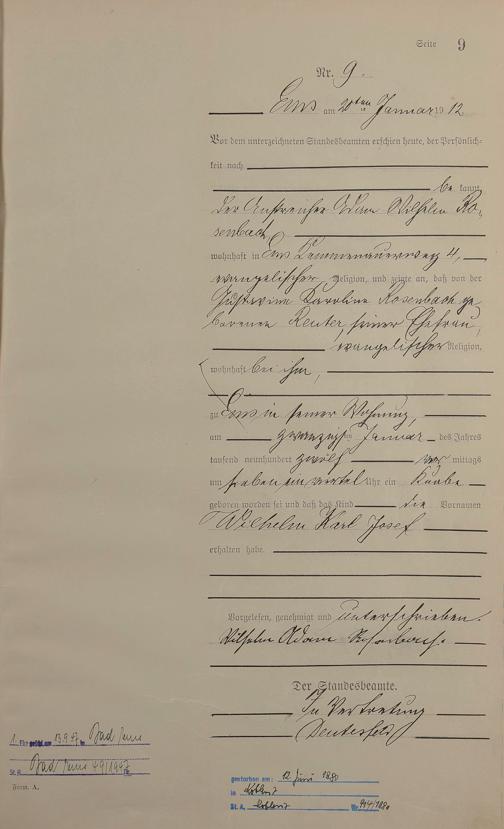 Seite 9
Nr. 9.
Ems am 20ten Januar 1912
Vor dem unterzeichneten Standesbeamten erschien heute, der Persönlich-
keit nach
be kannt,
der Anstreicher Adam Wilhelm Ro-
senbach,
wohnhaft in Ems Kemmenauerweg 4,
evangelischer Religion, und zeigte an, daß von der
Karoline Rosenbach ge-
borenen Reuter, seiner Ehefrau,
evangelischer Religion,
wohnhaft bei ihm,
zu Ems in seiner Wohnung,
am zwanzigsten Januar des Jahres
tausend neunhundert zwölf vor mittags
um sieben ein viertel Uhr ein Knabe
geboren worden sei und daß das Kind die Vornamen
Wilhelm Karl Josef
erhalten habe.
Vorgelesen, genehmigt und unterschrieben.
Wilhelm Adam Rosenbach.
Der Standesbeamte.
In Vertretung
1. Ehe am 13.9.47 in Bad Ems
St. A. Bad Ems 49/1947 Nr.
Form. A.
gestorben am: 12 Juni 1980
in Koblenz
St. A. Koblenz Nr.